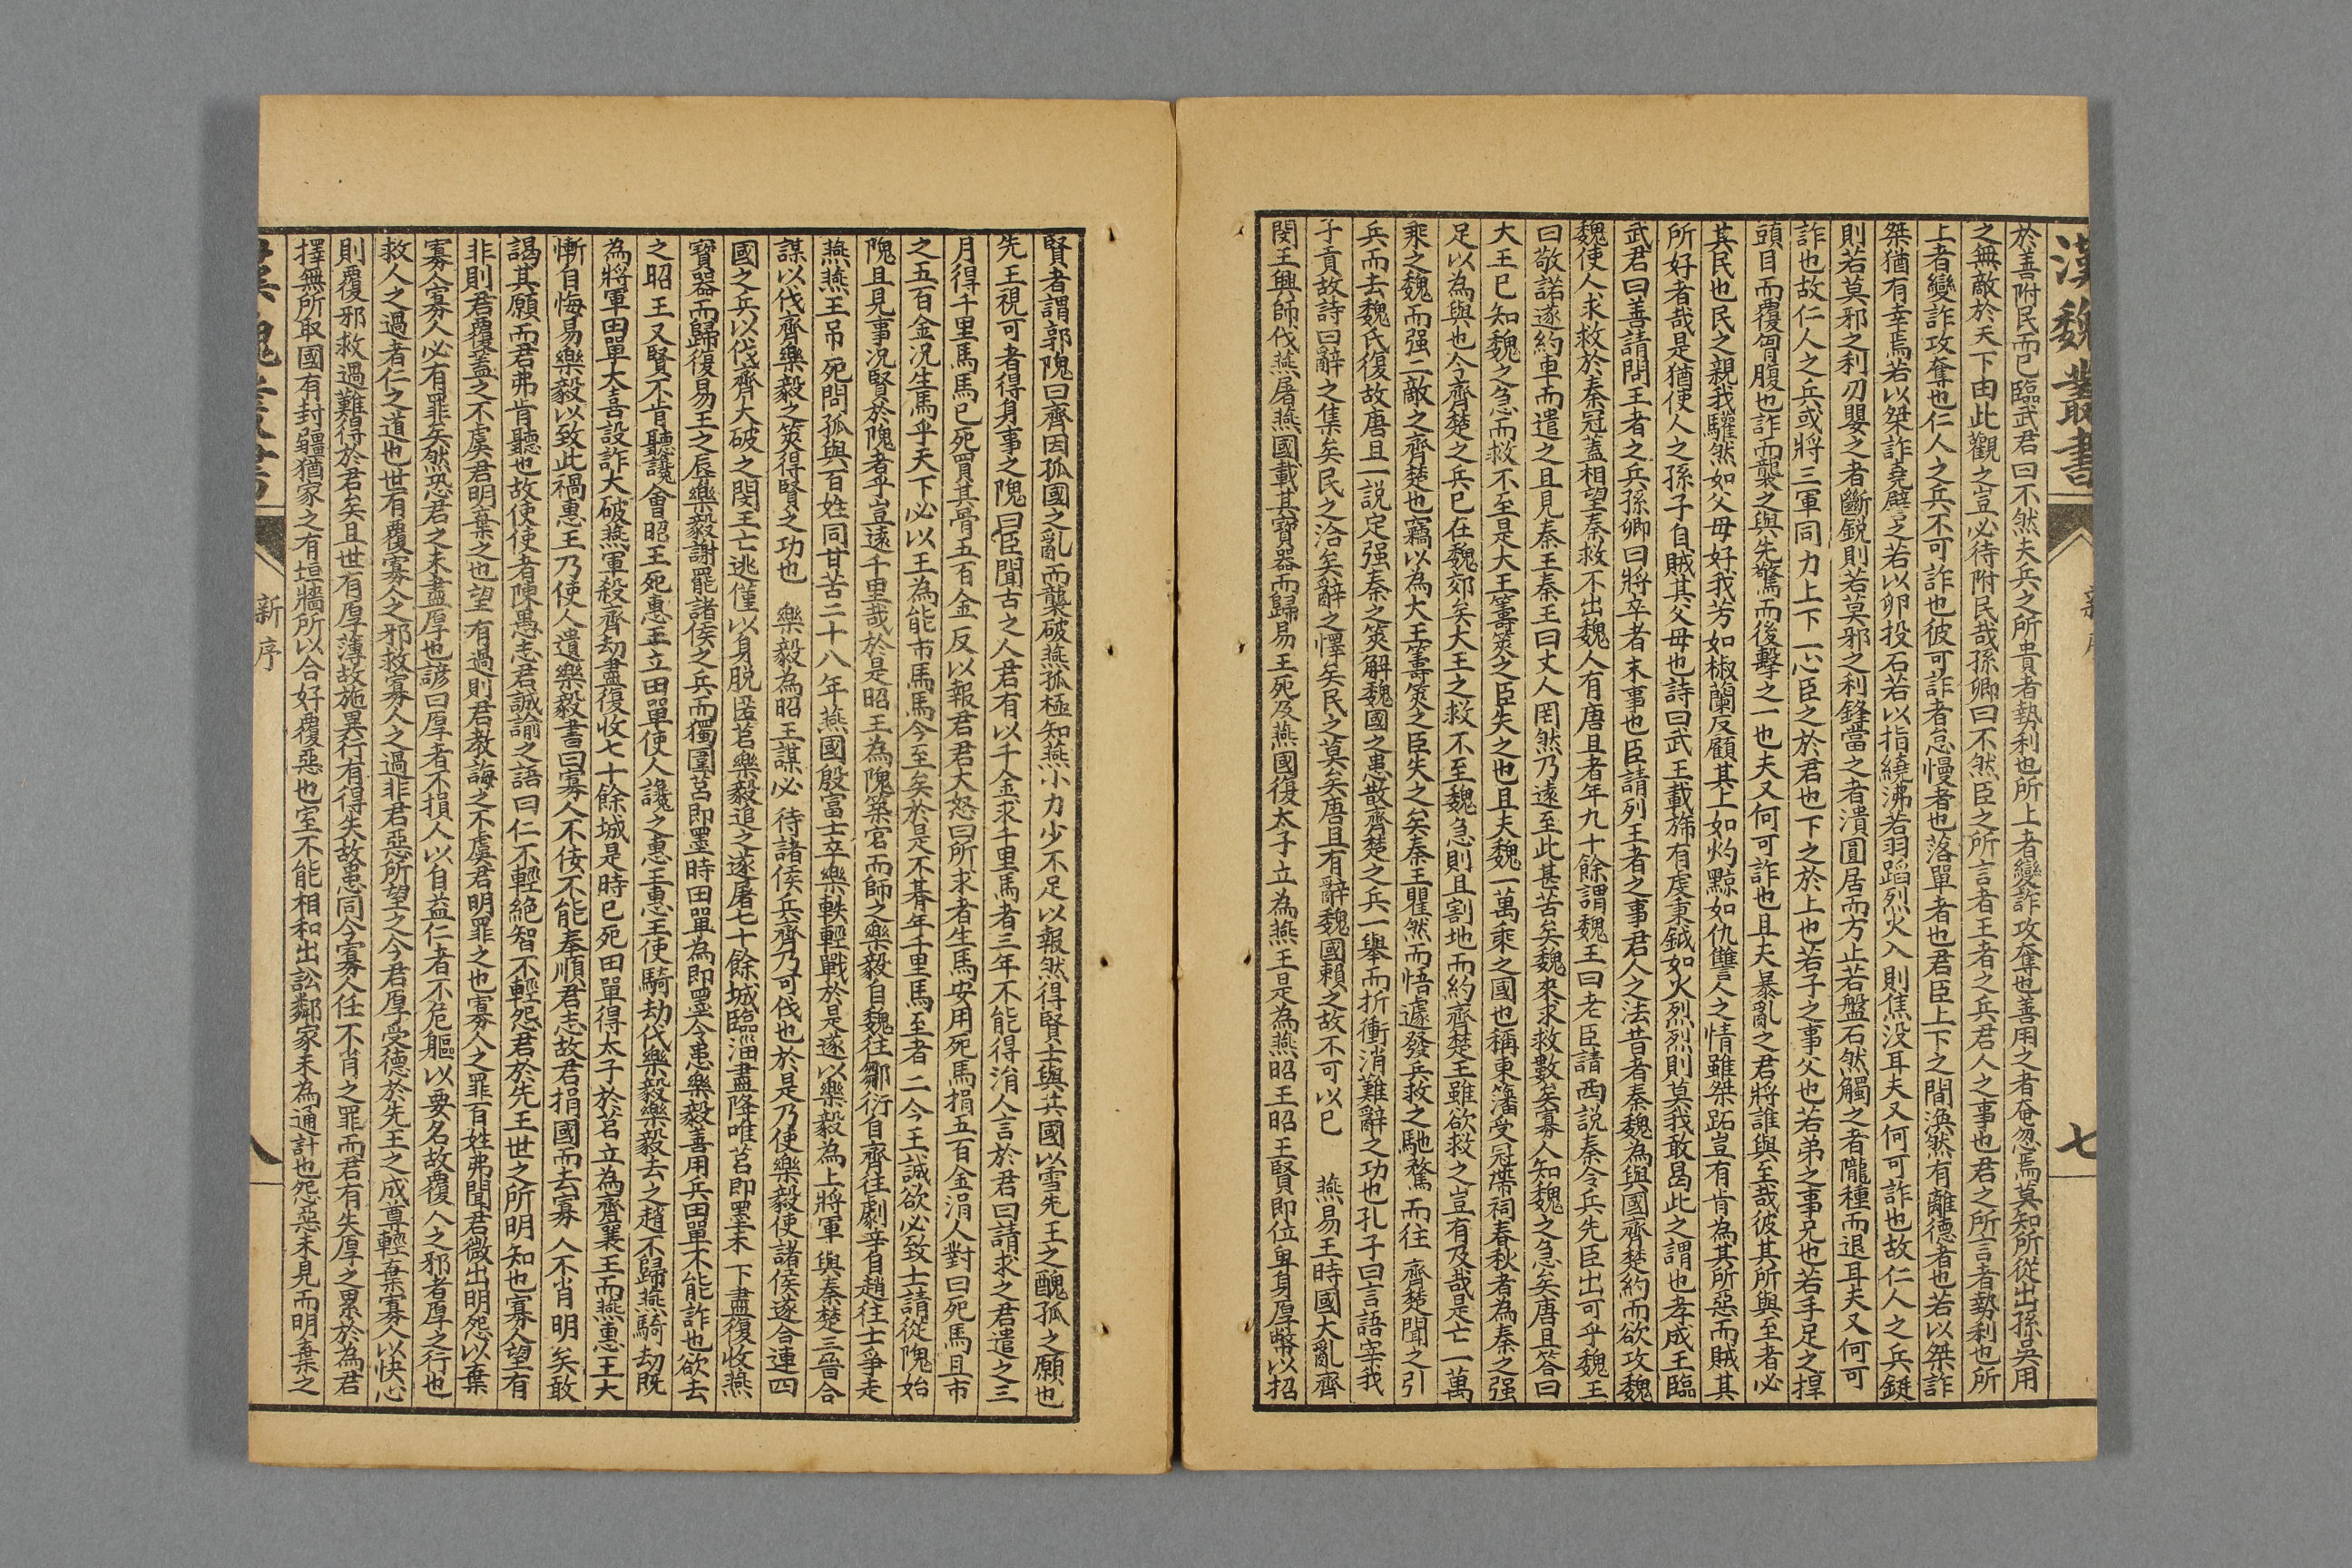 漢魏叢書
新序
七
於善附民而已臨武君曰不然夫兵之所貴者勢利也所上者變詐攻奪也善用之者奄忽焉莫知所從出孫吳用
之無敵於天下由此觀之豈必待附民哉孫卿曰不然臣之所言者王者之兵君人之事也君之所言者勢利也所
上者變詐攻奪也仁人之兵不可詐也彼可詐者怠慢者也落單者也君臣上下之間渙然有離德者也若以桀詐
桀猶有幸焉若以桀詐堯譬之若以卵投石若以指繞沸若羽蹈烈火入則焦没耳夫又何可詐也故仁人之兵鋌
則若莫邪之利刃嬰之者斷銳則若莫邪之利鋒當之者潰圓居而方止若盤石然觸之者隴種而退耳夫又何可
詐也故仁人之兵或將三軍同力上下一心臣之於君也下之於上也若子之事父也若弟之事兄也若手足之捍
頭目而覆胷腹也詐而襲之與先驚而後擊之一也夫又何可詐也且夫暴亂之君將誰與至哉彼其所與至者必
其民也民之親我驩然如父母好我芳如椒蘭反顧其上如灼黥如仇讐人之情雖桀跖豈有肯為其所惡而賊其
所好者哉是猶使人之孫子自賊其父母也詩曰武王載旆有虔秉鉞如火烈烈則莫我敢曷此之謂也孝成王臨
武君曰善請問王者之兵孫卿曰將卒者末事也臣請列王者之事君人之法昔者秦魏為與國齊楚約而欲攻魏
魏使人求救於秦冠蓋相望秦救不出魏人有唐且者年九十餘謂魏王曰老臣請西說秦令兵先臣出可乎魏王
曰敬諾遂約車而遣之且見秦王秦王曰丈人罔然乃遠至此甚苦矣魏來求救數矣寡人知魏之急矣唐且答曰
大王已知魏之急而救不至是大王籌筴之臣失之也且夫魏一萬乘之國也稱東藩受冠帶祠春秋者為秦之强
足以為與也今齊楚之兵已在魏郊矣大王之救不至魏急則且割地而約齊楚王雖欲救之豈有及哉是亡一萬
乘之魏而强二敵之齊楚也竊以為大王籌筴之臣失之矣秦王瞿然而悟遽發兵救之馳騖而往齊楚聞之引
兵而去魏氏復故唐且一說定强秦之筴解魏國之患散齊楚之兵一舉而折衝消難辭之功也孔子曰言語宰我
子貢故詩曰辭之集矣民之洽矣辭之懌矣民之莫矣唐且有辭魏國賴之故不可以已　燕易王時國大亂齊
閔王興師伐燕屠燕國載其寶器而歸易王死及燕國復太子立為燕王是為燕昭王昭王賢即位卑身厚幣以招
賢者謂郭隗曰齊因孤國之亂而襲破燕孤極知燕小力少不足以報然得賢士與共國以雪先王之醜孤之願也
先王視可者得身事之隗曰臣聞古之人君有以千金求千里馬者三年不能得涓人言於君曰請求之君遣之三
月得千里馬馬已死買其骨五百金反以報君君大怒曰所求者生馬安用死馬捐五百金涓人對曰死馬且市
之五百金况生馬乎天下必以王為能市馬馬今至矣於是不朞年千里馬至者二今王誠欲必致士請從隗始
隗且見事况賢於隗者乎豈遠千里哉於是昭王為隗築宮而師之樂毅自魏往鄒衍自齊往劇辛自趙往士爭走
燕燕王吊死問孤與百姓同甘苦二十八年燕國殷富士卒樂軼輕戰於是遂以樂毅為上將軍與秦楚三晉合
謀以伐齊樂毅之筴得賢之功也　樂毅為昭王謀必待諸侯兵齊乃可伐也於是乃使樂毅使諸侯遂合連四
國之兵以伐齊大破之閔王亡逃僅以身脫匿莒樂毅追之遂屠七十餘城臨淄盡降唯莒即墨未下盡復收燕
寶器而歸復易王之辰樂毅謝罷諸侯之兵而獨圍莒即墨時田單為即墨令患樂毅善用兵田單不能詐也欲去
之昭王又賢不肯聽讒會昭王死惠王立田單使人讒之惠王惠王使騎劫代樂毅樂毅去之趙不歸燕騎劫既
為將軍田單大喜設詐大破燕軍殺齊劫盡復收七十餘城是時已死田單得太子於莒立為齊襄王而燕惠王大
慚自悔易樂毅以致此禍惠王乃使人遺樂毅書曰寡人不佞不能奉順君志故君捐國而去寡人不肖明矣敢
謁其願而君弗肯聽也故使使者陳愚志君誠諭之語曰仁不輕絕智不輕怨君於先王世之所明知也寡人望有
非則君覆蓋之不虞君明棄之也望有過則君教誨之不虞君明罪之也寡人之罪百姓弗聞君微出明怨以棄
寡人寡人必有罪矣然恐君之未盡厚也諺曰厚者不損人以自益仁者不危軀以要名故覆人之邪者厚之行也
救人之過者仁之道也世有覆寡人之邪救寡人之過非君惡所望之今君厚受德於先王之成尊輕棄寡人以快心
則覆邪救過難得於君矣且世有厚薄故施異行有得失故患同今寡人任不肖之罪而君有失厚之累於為君
擇無所取國有封疆猶家之有垣牆所以合好覆惡也室不能相和出訟鄰家未為通計也怨惡未見而明棄之
新序
八